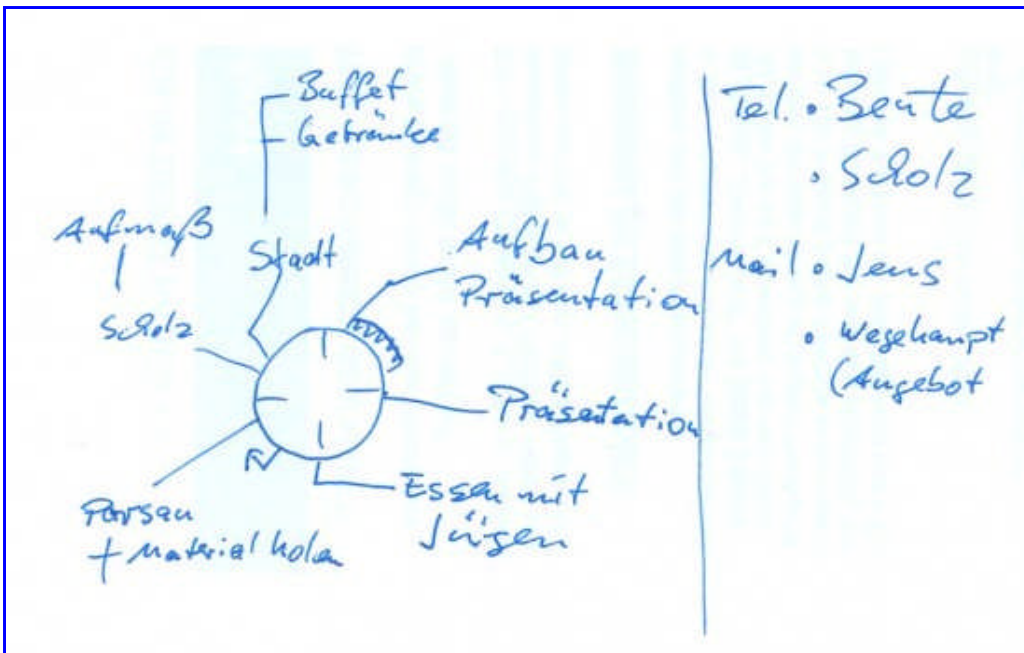 Buffet
Getränke
Aufmaß
Stadt
Scholz
Aufbau
Präsentation
Präsentation
Essen mit
Jürgen
+ Material holen
Tel. • Beate
• Scholz
Mail • Jens
• Wegehaupt
(Angebot